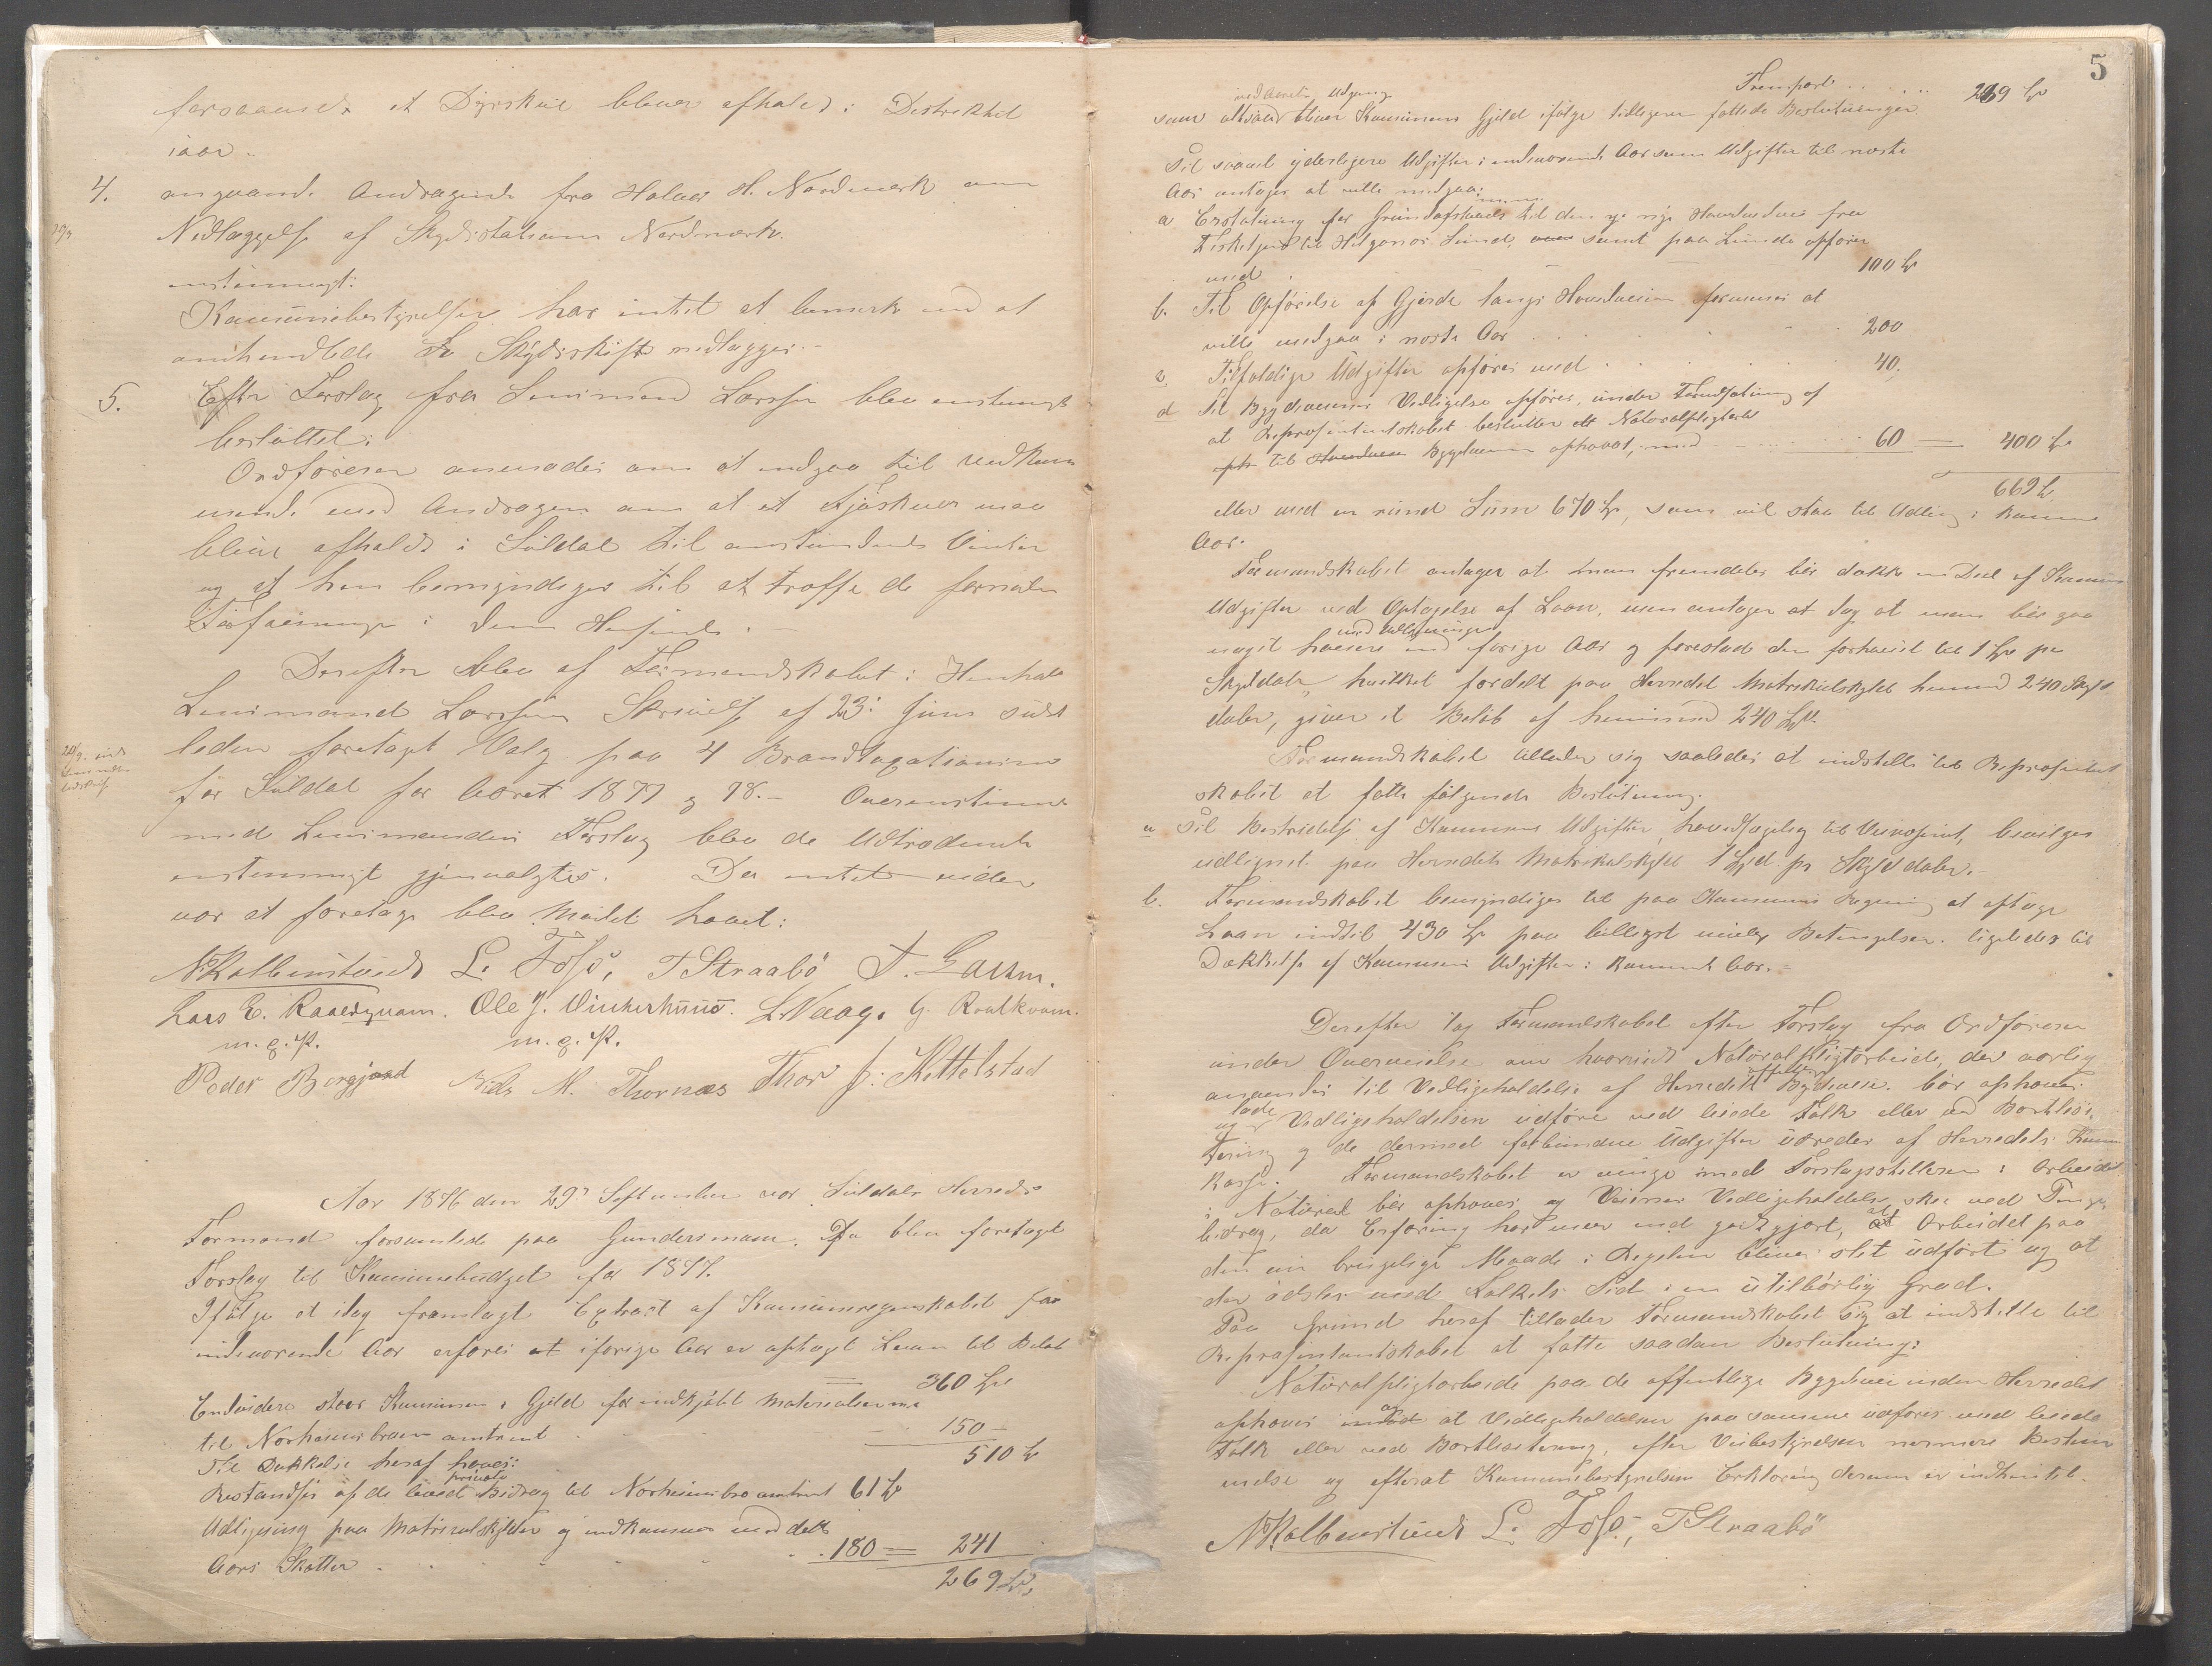 forsaavidt et Dyrskue bliver afholdt i Distriktet
iaar.
4. angaaende Andragende fra Halvor H. Nordmark om
Nedlæggelse af Skydsstationen Nordmark.
enstemmigt:
Kommunebestyrelsen har intet at bemærke ved at
omhandlede Skydsskifte nedlægges.
5. Efter Forslag fra Lensmand Larsen blev enstemmigt
besluttet:
Ordføreren anmodes om at indgaa til Vedkom
mende med Andragende om at et Fjøskue maa
blive afholdt i Suldal til anstundende Vinter
og at han bemyndiges til at træffe de fornødne
Foranstaltninger i den Henseende.
Derefter blev af Formandskabet i Henhold
Lensmand Larsens Skrivelse af 23. Juni sidst
leden foretaget Valg paa 4 Brandtaxationsmænd
for Suldal for Aaret 1877 og 78. – Overenstemmende
med Lensmandens Forslag blev de Udtrædende
enstemmigt gjenvalgte. Da intet videre
var at foretage blev Mødet hævet:
N. Kolbenstvedt L. Foss, T Straabö
Lars E. Raaedquam. Ole J. Vinkerhuus. L. Vaage G. Roalkvam.
m. p. P. m. p. P.
Peder Bergjord Nids M. Thornæs Thor J. Kittelstad
Aar 1876 den 29de September var Suldals Herreds
Formænd forsamlede paa Gundersmoen. Da blev foretaget
Forslag til Kommunebudget for 1877.
Ifølge et idag fremlagt Extract af Kommuneregnskabet for
indeværende Aar erfares at iforige Aar er optaget Laan til Beløb
360 Kr
Endvidere staar Kommunen i Gjeld for indkjøbt Materialier m.v.
til Norheimsbroen omtrent 150 –
510 Kr
Til Dækkelse heraf haves:
Restandser af de lovede private Bidrag til Norheimsbro omtrent 61 Kr
Udligning paa Matrikulskylden og indkommer med dette
Aars Skatter . . . 180 = 241
269 Kr.
5
Transport . . . 269 Kr
ved Aarets Udgang
som altsaa bliver Kommunens Gjeld ifølge tidligere fattede Beslutninger
Til saavel yderligere Udgifter i indeværende Aar som Udgifter til næste
Aar antages at ville medgaa:
a Erstatning for Grundafstaaelse til den nye Hovedvei fra
Fisketjøn til Helganes Sund, samt paa Lunde opføres
med . 100 Kr
b. Til Opførelse af Gjerde langs Hovedveien formenes at
ville medgaa i næste Aar . . 200
c. Tilfældige Udgifter opføres med . . 40.
d Til Bygdeveiens Vedligehold opføres, under Forudsætning af
at Repræsentantskabet beslutter at Naturalpligtarbeidet
til Bygdeveiene ophævet, med 60 — 400 Kr
669 Kr
eller med en rund Sum 670 Kr, som vil staa til Udligning i kommende
Aar.
Formandskabet antager at man fremdeles bør dække en Deel af Kommunens
Udgifter ved Optagelse af Laan, men antager dog at man bør gaa
noget høiere med Udligningen end forige Aar og foreslaar den forhøiet til 1 Kr pr
Skylddaler, hvilket fordelt paa Herredets Matrikulskyld henimod 240 Skyld
daler, giver et Beløb af henimod 240 Kr.
Formandskabet tillader sig saaledes at indstille til Repræsentant
skabet at fatte følgende Beslutning.
a Til Bestridelse af Kommunens Udgifter, hovedsagelig til Veivæsenet, bevilges
udlignet paa Herredets Matrikulskyld 1 Kr pr Skylddaler.
b. Formandskabet bemyndiges til paa Kommunens Regning at optage
Laan indtil 430 Kr paa billigst mulige Betingelser ligeledes til
Dækkelse af Kommunens Udgifter i kommende Aar.
Derefter tog Formandskabet efter Forslag fra Ordføreren
under Overveielse om hvorvidt Naturalpligtarbeide, der aarlig
anvendes til Vedligeholdelse af Herredets offentlige Bygdeveie bør ophæves
og lade Vedligeholdelsen udføre ved leiede Folk eller ved Bortlisi
tering og de dermed forbundne Udgifter udredes af Herredets Kommune
kasse. Formandskabet er enige med Forslagsstilleren i Arbeidet
i Natural bør ophæves og Veienes Vedligeholdelse ske ved Penge
bidrag, da Erfaring har mere end godtgjort, at Arbeidet paa
den nu brugelige Maade i Regelen bliver slet udført og at
der ødsles med Folkets Tid i en utilbørlig Grad.
Paa Grund heraf tillader Formandskabet sig at indstille til
Repræsentantskabet at fatte saadan Beslutning:
Naturalpligtarbeide paa de offentlige Bygdeveie inden Herredet
ophæves og at Vedligeholdelsen paa samme udføres med leiede
Folk eller ved Bortlisitering, efter Veibestyrelsens nærmere Bestem
melse og efterat Kommunebestyrelsens Erklæring derom er indhentet.
N Kolbenstvedt L. Foss, T Straabö